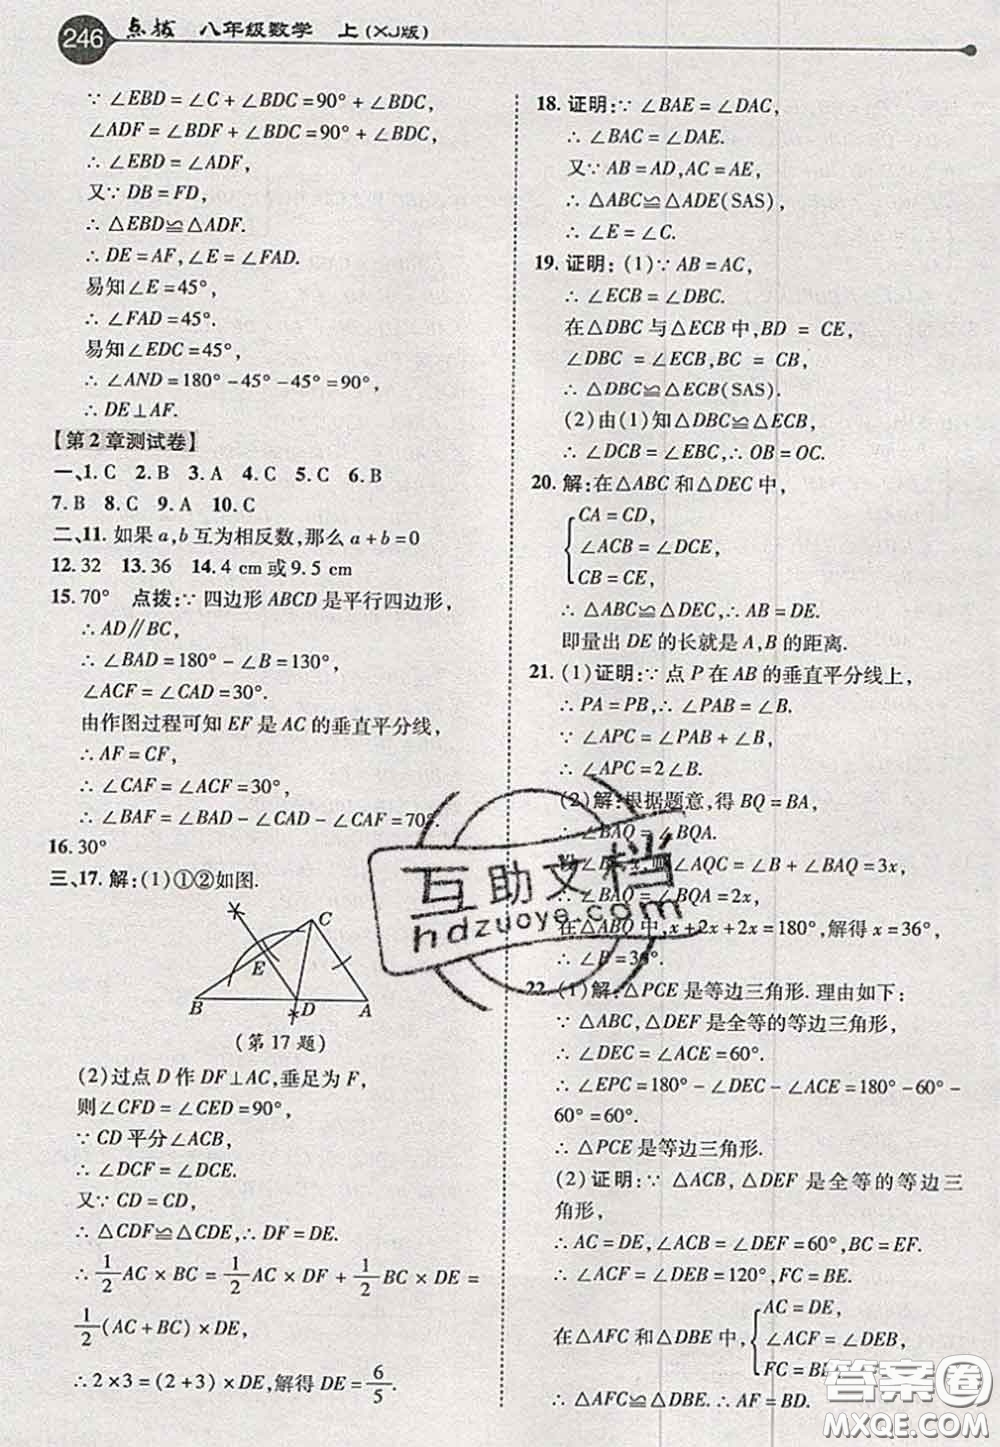 246 点拨 八年级数学 上(XJ版)
∵∠EBD=∠C+∠BDC=90°+∠BDC,
∠ADF=∠BDF+∠BDC=90°+∠BDC,
∴∠EBD=∠ADF,
又∵DB=FD,
∴△EBD≌△ADF.
∴DE=AF,∠E=∠FAD.
易知∠E=45°,
∴∠FAD=45°.
易知∠EDC=45°,
∴∠AND=180°-45°-45°=90°,
∴DE⊥AF.
【第2章测试卷】
一、1. C 2. B 3. A 4. C 5. C 6. B
7. B 8. C 9. A 10. C
二、11. 如果a,b互为相反数,那么a+b=0
12. 32 13. 36 14. 4 cm或9.5 cm
15. 70° 点拨:∵四边形ABCD是平行四边形,
∴AD∥BC,
∴∠BAD=180°-∠B=130°,
∠ACF=∠CAD=30°.
由作图过程可知EF是AC的垂直平分线,
∴AF=CF,
∴∠CAF=∠ACF=30°,
∴∠BAF=∠BAD-∠CAD-∠CAF=70°.
16. 30°
三、17. 解:(1)①②如图.
C
E
B D A
(第17题)
(2)过点D作DF⊥AC,垂足为F,
则∠CFD=∠CED=90°,
∵CD平分∠ACB,
∴∠DCF=∠DCE,
又∵CD=CD,
∴△CDF≌△CDE,∴DF=DE.
∴1/2AC×BC=1/2AC×DF+1/2BC×DE=
1/2(AC+BC)×DE,
∴2×3=(2+3)×DE,解得DE=6/5.
18. 证明:∵∠BAE=∠DAC,
∴∠BAC=∠DAE.
又∵AB=AD,AC=AE,
∴△ABC≌△ADE(SAS),
∴∠E=∠C.
19. 证明:(1)∵AB=AC,
∴∠ECB=∠DBC.
在△DBC与△ECB中,BD=CE,
∠DBC=∠ECB,BC=CB,
∴△DBC≌△ECB(SAS).
(2)由(1)知△DBC≌△ECB,
∴∠DCB=∠EBC,∴OB=OC.
20. 解:在△ABC和△DEC中,
CA=CD,
∠ACB=∠DCE,
CB=CE,
∴△ABC≌△DEC,∴AB=DE.
即量出DE的长就是A,B的距离.
21. (1)证明:∵点P在AB的垂直平分线上,
∴PA=PB,∴∠PAB=∠B.
∴∠APC=∠PAB+∠B,
∴∠APC=2∠B.
(2)解:根据题意,得BQ=BA,
∴∠BAQ=∠BQA.
设∠B=x,则∠AQC=∠B+∠BAQ=3x,
∴∠BAQ=∠BQA=2x,
在△ABQ中,x+2x+2x=180°,解得x=36°,
∴∠B=36°.
22. (1)解:△PCE是等边三角形. 理由如下:
∵△ABC,△DEF是全等的等边三角形,
∴∠DEC=∠ACE=60°.
∴∠EPC=180°-∠DEC-∠ACE=180°-60°-
60°=60°.
∴△PCE是等边三角形.
(2)证明:∵△ACB,△DEF是全等的等边三
角形,
∴AC=DE,∠ACB=∠DEF=60°,BC=EF.
∴∠ACF=∠DEB=120°,FC=BE.
在△AFC和△DBE中,
AC=DE,
∠ACF=∠DEB,
FC=BE,
∴△AFC≌△DBE.∴AF=DB.
互助文档
hdzuoye.com
答案圈
MXQE.COM